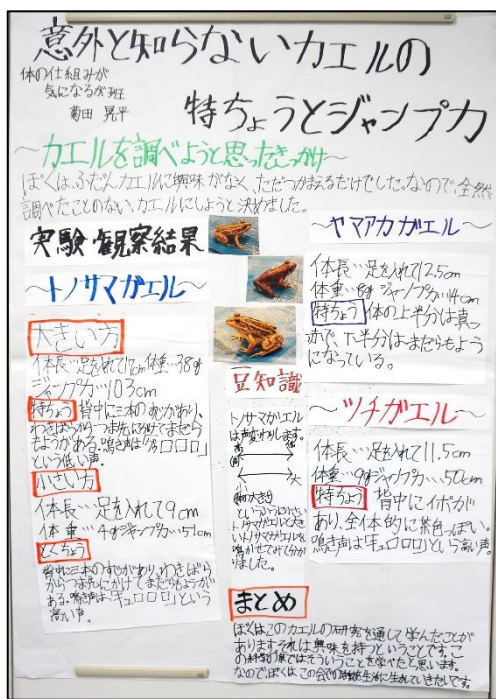 意外と知らないカエルの
特ちょうとジャンプ力
体の仕組みが
気になるな班
菊田 晃平
～カエルを調べようと思ったきっかけ～
ぼくは、ふだんカエルに興味がなく、ただつかまえるだけでした。なので、全然
調べたことのないカエルにしようと決めました。
実験・観察結果
～トノサマガエル～
大きい方
体長…足を入れて17cm 体重…38g
ジャンプ力…103cm
特ちょう 背中に三本のすじがあり、
わきばらからつま先にかけてまだら
もようがある。鳴き声は
という低い声。
小さい方
体長…足を入れて9cm
体重…4g ジャンプ力…51cm
とくちょう
背中に三本のすじがあり、わきばら
からつま先にかけてまだらもようが
ある。鳴き声は「キュロロロ」という
高い声。
豆知識
トノサマガエル
は声変わりします。
高
低
小 大
体の大きさ
というふうに小さい
トノサマガエルと大き
いトノサマガエルを
鳴かせてみて分か
りました。
～ヤマアカガエル～
体長…足を入れて12.5cm
体重…8g ジャンプ力…14cm
特ちょう 体の上半分は真っ
赤で、下半分はまだらもよう
になっている。
～ツチガエル～
体長…足を入れて11.5cm
体重…9g ジャンプ力…50cm
特ちょう 背中にイボがが
あり、全体的に茶色っぽい。
鳴き声は「キュロロロ」という高い声。
まとめ
ぼくはこのカエルの研究を通して学んだことが
あります。それは興味を持つということです。こ
の 会ではそういうことを学べたと思います。
なのでぼくはこの会での を生活に生かしていきたいです。